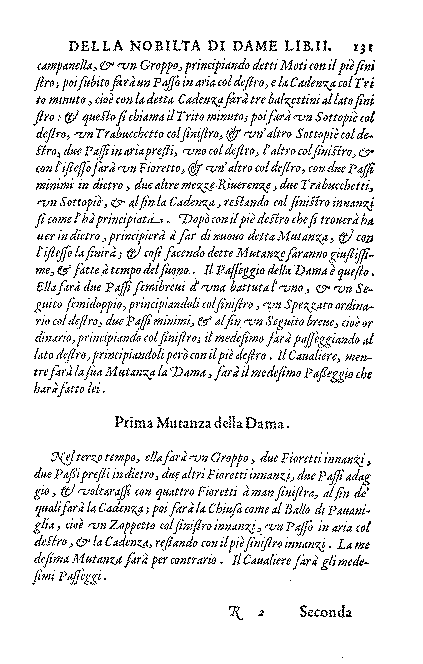 DELLA NOBILTA DI DAME LIB.II. 131
campanella, & vn Groppo, principiando detti Moti con il piè sini
stro; poi subito farà vn Passo in aria col destro, e la Cadenza col Tri
to minuto, cioè con la detta Cadenza farà tre balzettini al lato sini
stro: & questo si chiama il Trito minuto; poi farà vn Sottopiè col
destro, vn Trabucchetto col sinistro, & vn'altro Sottopiè col de-
stro, due Passi in aria presti, vno col destro, l'altro col sinistro, &
con l'istesso farà vn Fioretto, & vn'altro col destro, con due Passi
minimi in dietro, due altre mezze Riuerenze, due Trabucchetti,
vn Sottopiè, & al fin la Cadenza, restando col sinistro innanzi
si come l'hà principiata. Dopò con il piè destro che si trouerà ha
uer in dietro, principierà à far di nuouo detta Mutanza, & con
l'istesso la finirà; & così facendo dette Mutanze saranno giustissi-
me, & fatte à tempo del suono. Il Passeggio della Dama è questo.
Ella farà due Passi semibreui d'vna battuta l'vno, & vn Se-
guito semidoppio, principiandoli col sinistro, vn Spezzato ordina-
rio col destro, due Passi minimi, & al fin vn Seguito breue, cioè or
dinario, principiando col sinistro; il medesimo farà passeggiando al
lato destro, principiandoli però con il piè destro. Il Caualiere, men-
tre farà la sua Mutanza la Dama, farà il medesimo Passeggio che
harà fatto lei.
Prima Mutanza della Dama.
Nel terzo tempo, ella farà vn Groppo, due Fioretti innanzi,
due Passi presti in dietro, due altri Fioretti innanzi, due Passi adag
gio, & voltarassi con quattro Fioretti à man sinistra, al fin de'
quali farà la Cadenza; poi farà la Chiusa come al Ballo di Pauani-
glia, cioè vn Zappetto col sinistro innanzi, vn Passo in aria col
destro, & la Cadenza, restando con il piè sinistro innanzi. La me
desima Mutanza farà per contrario. Il Caualiere farà gli mede-
simi Passeggi.
R 2 Seconda